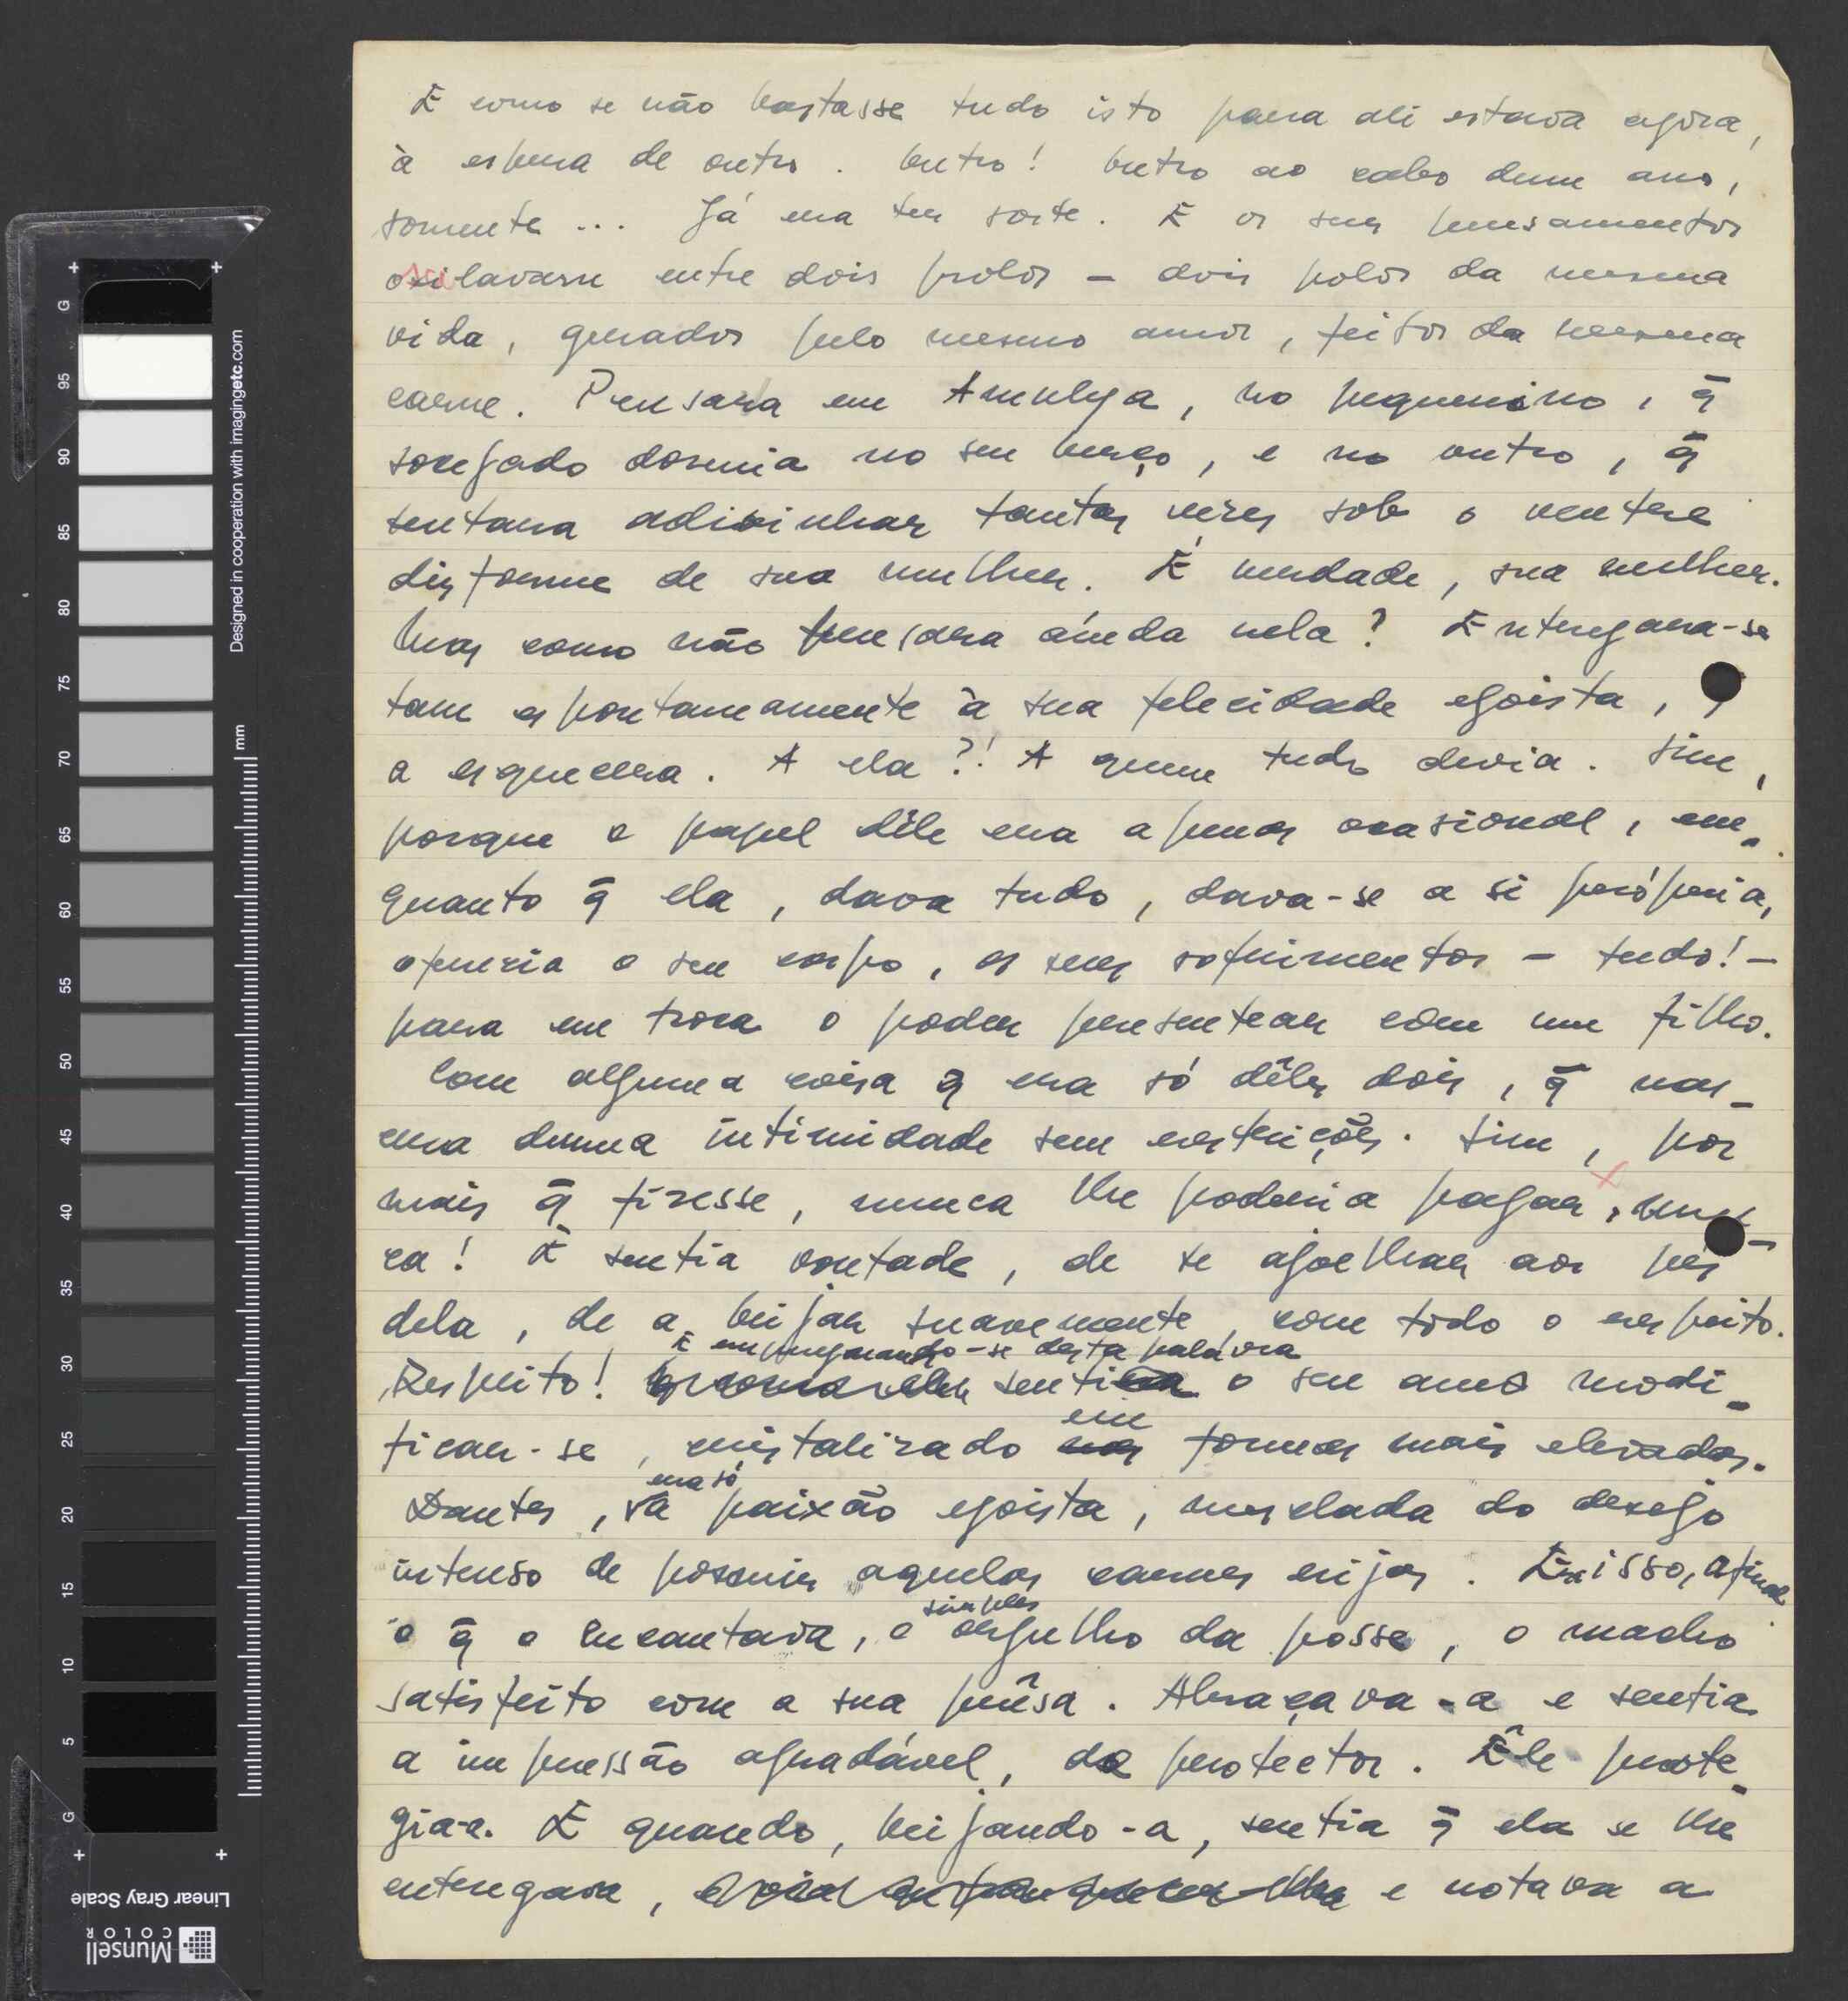 E como se não bastasse tudo isto para ali estava agora,
à espera de outro. Outro! Outro ao cabo dum ano,
somente ... Já era ter sorte. E os seus pensamentos
oscilavam entre dois polos - dois polos da mesma
vida, gerados pelo mesmo amor, feitos da mesma
carne. Pensara em Amulya, no pequenino, q̄
socegado dormia no seu berço, e no outro, q̄
tentara adivinhar tantas vezes sob o ventre
disforme de sua mulher. É verdade, sua mulher.
Mas como não pensara ainda nela? Entregara-se
tam espontaneamente à sua felecidade egoista, q̄
a esquecera. A ela?! A quem tudo devia. Sim,
porque o papel dêle era apenas ocasional, em-
quanto q̄ ela, dava tudo, dava-se a si própria,
oferecia o seu corpo, os seus sofrimentos - tudo! -
para em troca o poder presentear com um filho.
Com alguma coisa q̄ era só dêles dois, q̄ nas-
cera duma intimidade sem restrições. Sim, por
mais q̄ fizesse, nunca lhe poderia pagar, nun-
ca! E sentia vontade, de se ajoelhar aos pés
dela, de a beijar suavemente, com todo o respeito.
E empregnando-se desta palávra
Respeito! sentia o seu amor modi-
ficar-se, cristalizado em formas mais elevadas.
era só
Dantes, a paixão egoista, mesclada do desejo
intenso de possuir aquelas carnes rijas. Era isso, afinal
simples
o q̄ o encantava, o orgulho da posse, o macho
satisfeito com a sua prêsa. Abraçava-a e sentia
a impressão agradável, de protector. Êle prote-
gia-a. E quando, beijando-a, sentia q̄ ela se lhe
entregava, e notava a
Designed in cooperation with imagingetc.com
mm
G
95
90
85
80
75
70
65
60
55
50
45
40
35
30
25
20
15
10
5
G
Linear Gray Scale
Munsell
COLOR